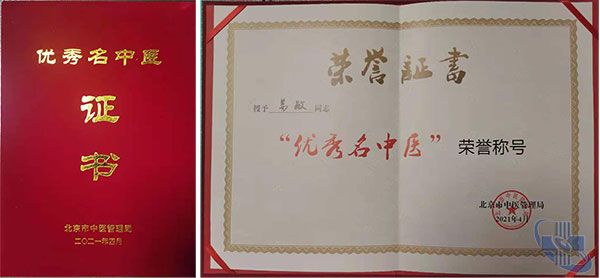 优秀名中医
证
书
北京市中医管理局
二〇二一年四月
荣誉証書
授予 敏 同志
“优秀名中医” 荣誉称号
北京市中医管理局
2021年4月